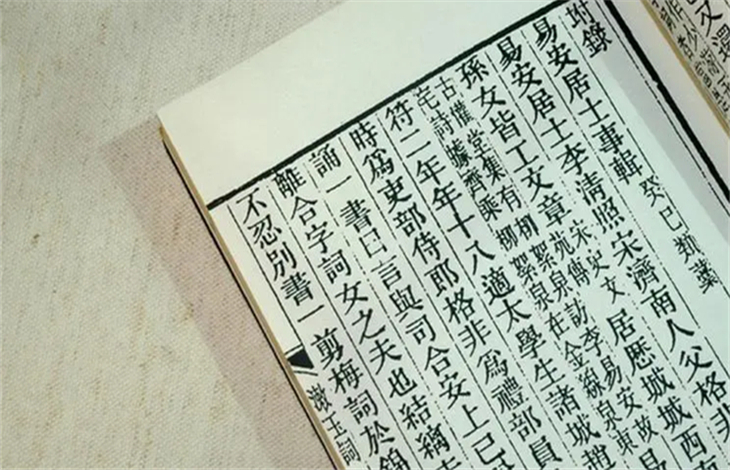 附錄
易安居士事輯 癸巳類藁
易安居士李清照宋濟南人父格非
孫女皆工文章宋史文苑傳居歷城城西南
古懽堂集有柳絮泉訪李易安故
宅詩據齊乘柳絮泉在金線泉東
符二年年十八適太學生諸城趙
時爲吏部侍郎格非爲禮部員
誦一書曰言與司合安上已
離合字詞女之夫也結縭
不忍別書一剪梅詞於錦
漱玉詞